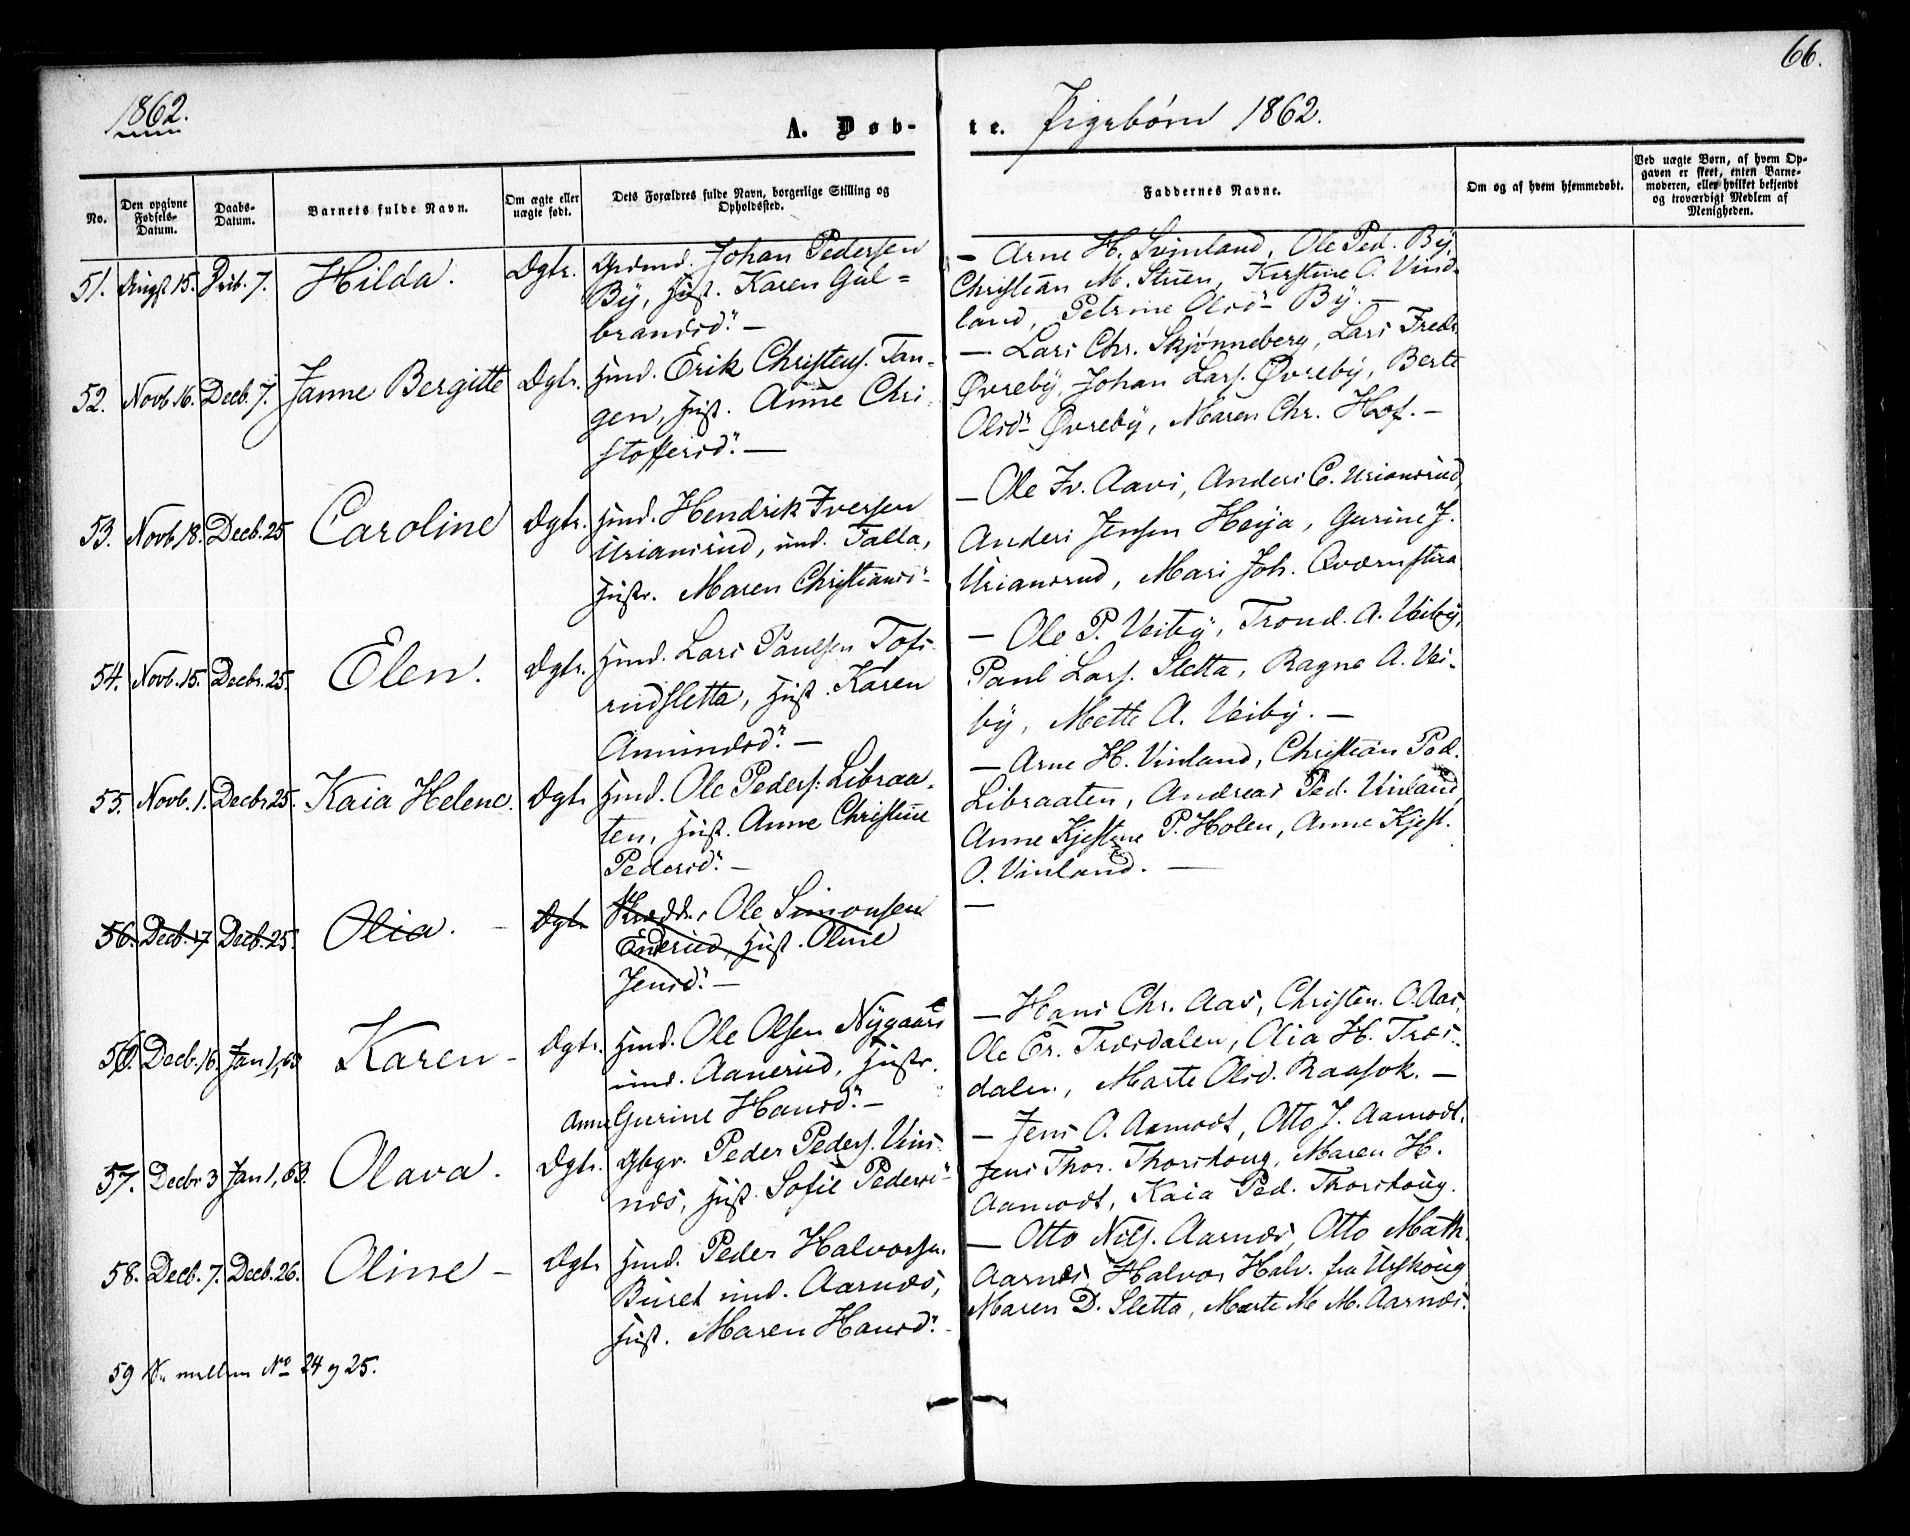 66.
1862.
A. Døb-
te. Pigebørn 1862.
No.
Den opgivne Fødsels-Datum.
Daabs-Datum.
Barnets fulde Navn.
Om ægte eller uægte født.
Dets Forældres fulde Navn, borgerlige Stilling og Opholdssted.
Faddernes Navne.
Om og af hvem hjemmedøbt.
Ved uægte Børn, af hvem Opgaven er skeet, enten Barnemoderen, eller hvilket bekjendt og troværdigt Medlem af Menigheden.
51. Augst 15. 7. Hilda. Dgtr. Grdmd. Johan Pedersen
By, Hust. Karen Gul=
brandsd. –
– Arne H. Svinland, Ole Ped. By,
Christian M. Stuen, Kirstine O. Vind-
land, Petrine Olsd. By. –
52. Novb 16. Decb. 7. Janne Bergitte Dgtr. Hmd. Erik Christens. Tan-
gen, Hust. Anne Chri-
stoffersd. –
– Lars Chr. Skjønneberg, Lars Fredr.
Øvreby, Johan Lars. Øvreby, Berte
Olsd. Øvreby, Maren Chr. Hof. –
53. Novb 18. Decb. 25 Caroline Dgtr. Hmd. Hendrik Iversen
Uriansrud, und. Falla,
Hustr. Maren Christiansd.
– Ole Iv. Aavs, Anders C. Uriansrud,
Anders Jensen Heija, Gurine J.
Uriansrud, Mari Joh. Qværnstra
54. Novb. 15. Decbr. 25. Elen. Dgtr. Hmd. Lars Paulsen Tofs-
rudsletta, Hust. Karen
Amundsd. –
– Ole P. Veiby, Trond. A. Veiby,
Paul Lars. Sletta, Ragne A. Vei-
by, Mette A. Veiby. –
55. Novb. 1. Decbr 25. Kaia Helene. Dgtr. Hmd. Ole Peders. Libraa-
ten, Hust. Anne Christine
Pedersd. –
– Arne H. Vinland, Christian Ped.
Libraaten, Andreas Ped. Vinland,
Anne Kjestine P. Holen, Anne Kjest.
O. Vinland. –
56. Decb. 17 Decb. 25. Olia. – Dgtr. Skrædder Ole Simonsen
Enderud, Hust. Oline
Jensd. –
–
56. Decb. 16. Jan 1, 63. Karen – Dgtr. Hmd. Ole Olsen Nygaard
und. Aanerud, Hustr.
Anne Gurine Hansd. –
– Hans Chr. Aas, Christen. O. Aas,
Ole Er. Træsdalen, Olia H. Træs-
dalen, Marte Olsd. Raasok. –
57. Decbr 3 Jan 1, 63. Olava. Dgtr. Gbgr. Peder Peders. Vins-
næs, Hust. Sofie Pedersd.
– Jens O. Aamodt, Otto J. Aamodt,
Jens Thor. Thorskoug, Maren H.
Aamodt, Kaia Ped. Thorskoug.
58. Decb. 7. Decb. 26. Oline – Dgtr Hmd. Peder Halvorsen
Buret und. Aarnæs,
Hust. Maren Hansd.
– Otto Nils. Aarnæs, Otto Math.
Aarnæs, Halvor Halv. fra Urskoug
Maren D. Sletta, Marte M. M. Aarnæs.
59 mellem No 24 og 25.